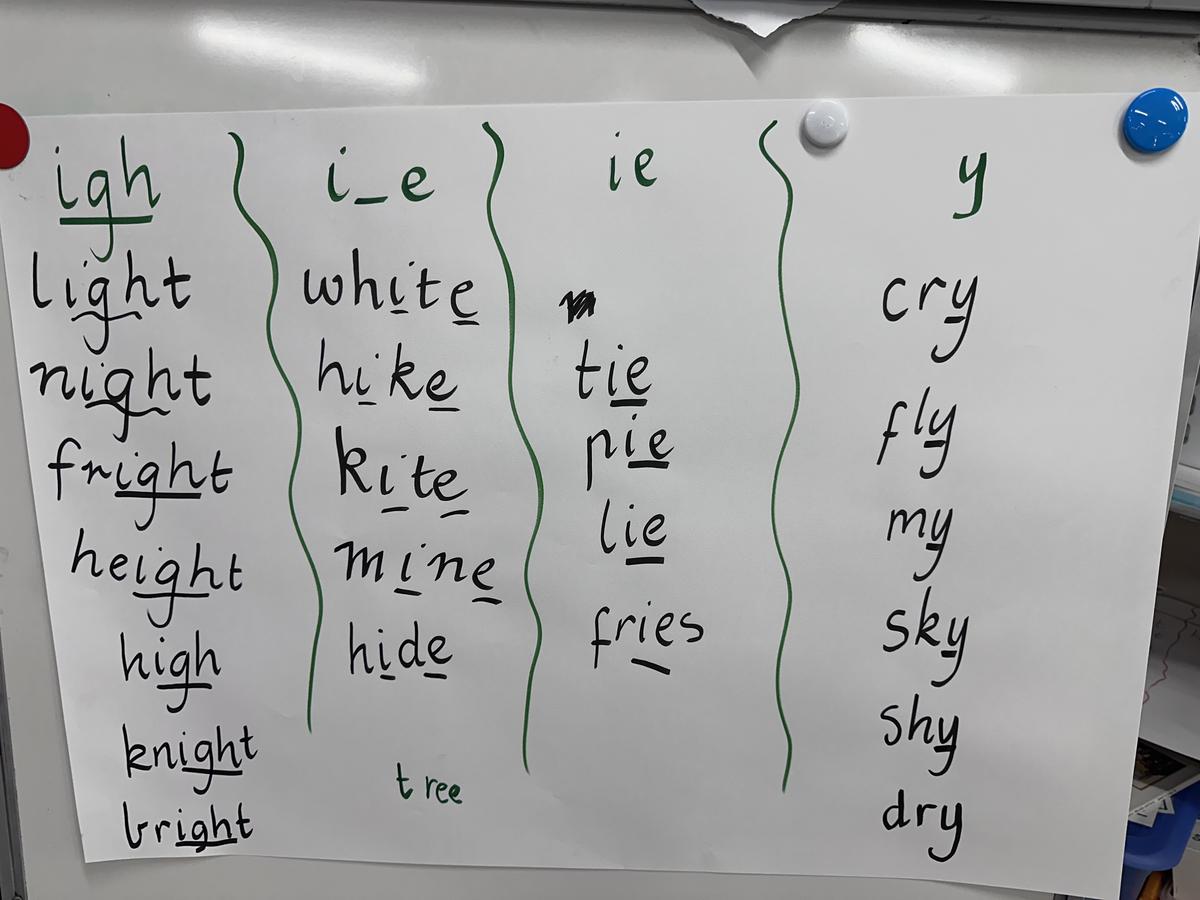 igh
light
night
fright
height
high
knight
bright
i_e
white
hike
kite
mine
hide
tree
ie
tie
pie
lie
fries
y
cry
fly
my
sky
shy
dry